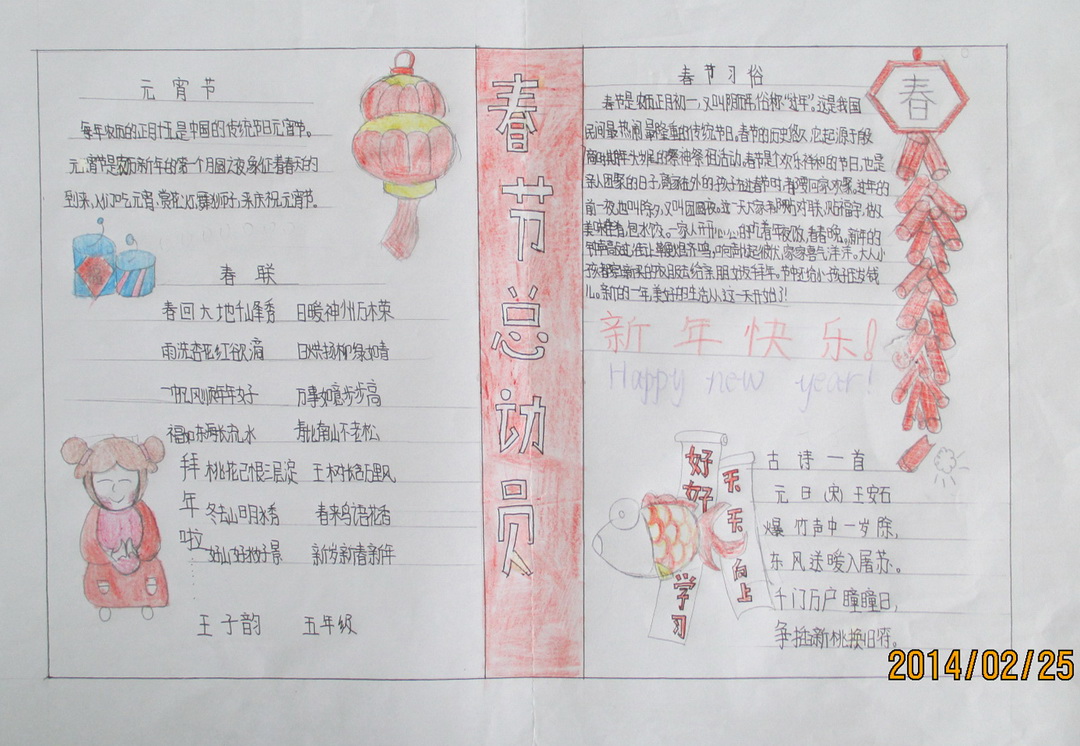 元宵节
每年农历的正月十五是中国的传统节日元宵节。
元宵节是农历新年的第一个月圆之夜,象征着春天的
到来,人们吃元宵、赏花灯、舞狮子,来庆祝元宵节。
春联
春回大地千山秀 日暖神州万木荣
雨洗杏花红欲滴 日烘杨柳绿如青
一帆风顺年年好 万事如意步步高
福如东海长流水 寿比南山不老松
桃花已恨三层淀
冬去山明水秀 春来鸟语花香
好山好水好景 新岁新春新年
拜年啦
王子韵 五年级
春节总动员
春节习俗
春节是农历正月初一,又叫阴历年,俗称“过年”。这是我国
民间最热闹最隆重的传统节日。春节的历史悠久,它起源于殷
商时期年头岁尾的祭神祭祖活动。春节是个欢乐祥和的节日,也是
亲人团聚的日子,离家在外的孩子在过春节时都要回家欢聚。过年的
前一夜,也叫除夕,又叫团圆夜。这一天大家都贴对联,贴福字,做
美味佳肴,包水饺。一家人开开心心的吃着年夜饭,看春晚。新年的
街上鞭炮齐鸣,家家喜气洋洋。大人小
孩都穿新买的衣服去给亲朋好友拜年。节中还给小孩压岁钱
儿。新的一年,美好的生活从这一天开始了!
春
新年快乐!
Happy new year!
好好学习
天天向上
古诗一首
元日(宋)王安石
爆竹声中一岁除,
东风送暖入屠苏。
千门万户瞳瞳日,
争插新桃换旧符。
2014/02/25